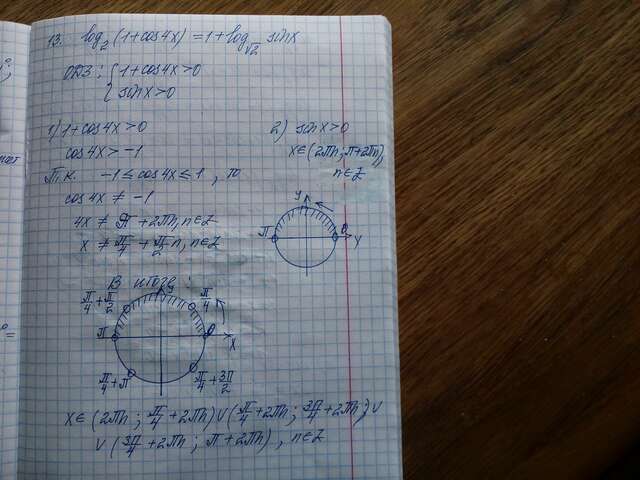 13. log₂(1+cos4x) = 1+log_√2 sinx
ОДЗ: { 1+cos4x>0
sinx>0
1) 1+cos4x>0
cos4x>-1
Т.к. -1≤cos4x≤1, то
cos4x ≠ -1
4x ≠ π+2πn, n∈Z
x ≠ π/4 + π/2 n, n∈Z
2) sinx>0
x∈(2πn; π+2πn),
n∈Z
y
π 0 x
В итоге:
y
π/4+π/2 π/4
π 0 x
π/4+π π/4+3π/2
x∈(2πn; π/4+2πn)∪(π/4+2πn; 3π/4+2πn)∪
∪(3π/4+2πn; π+2πn), n∈Z